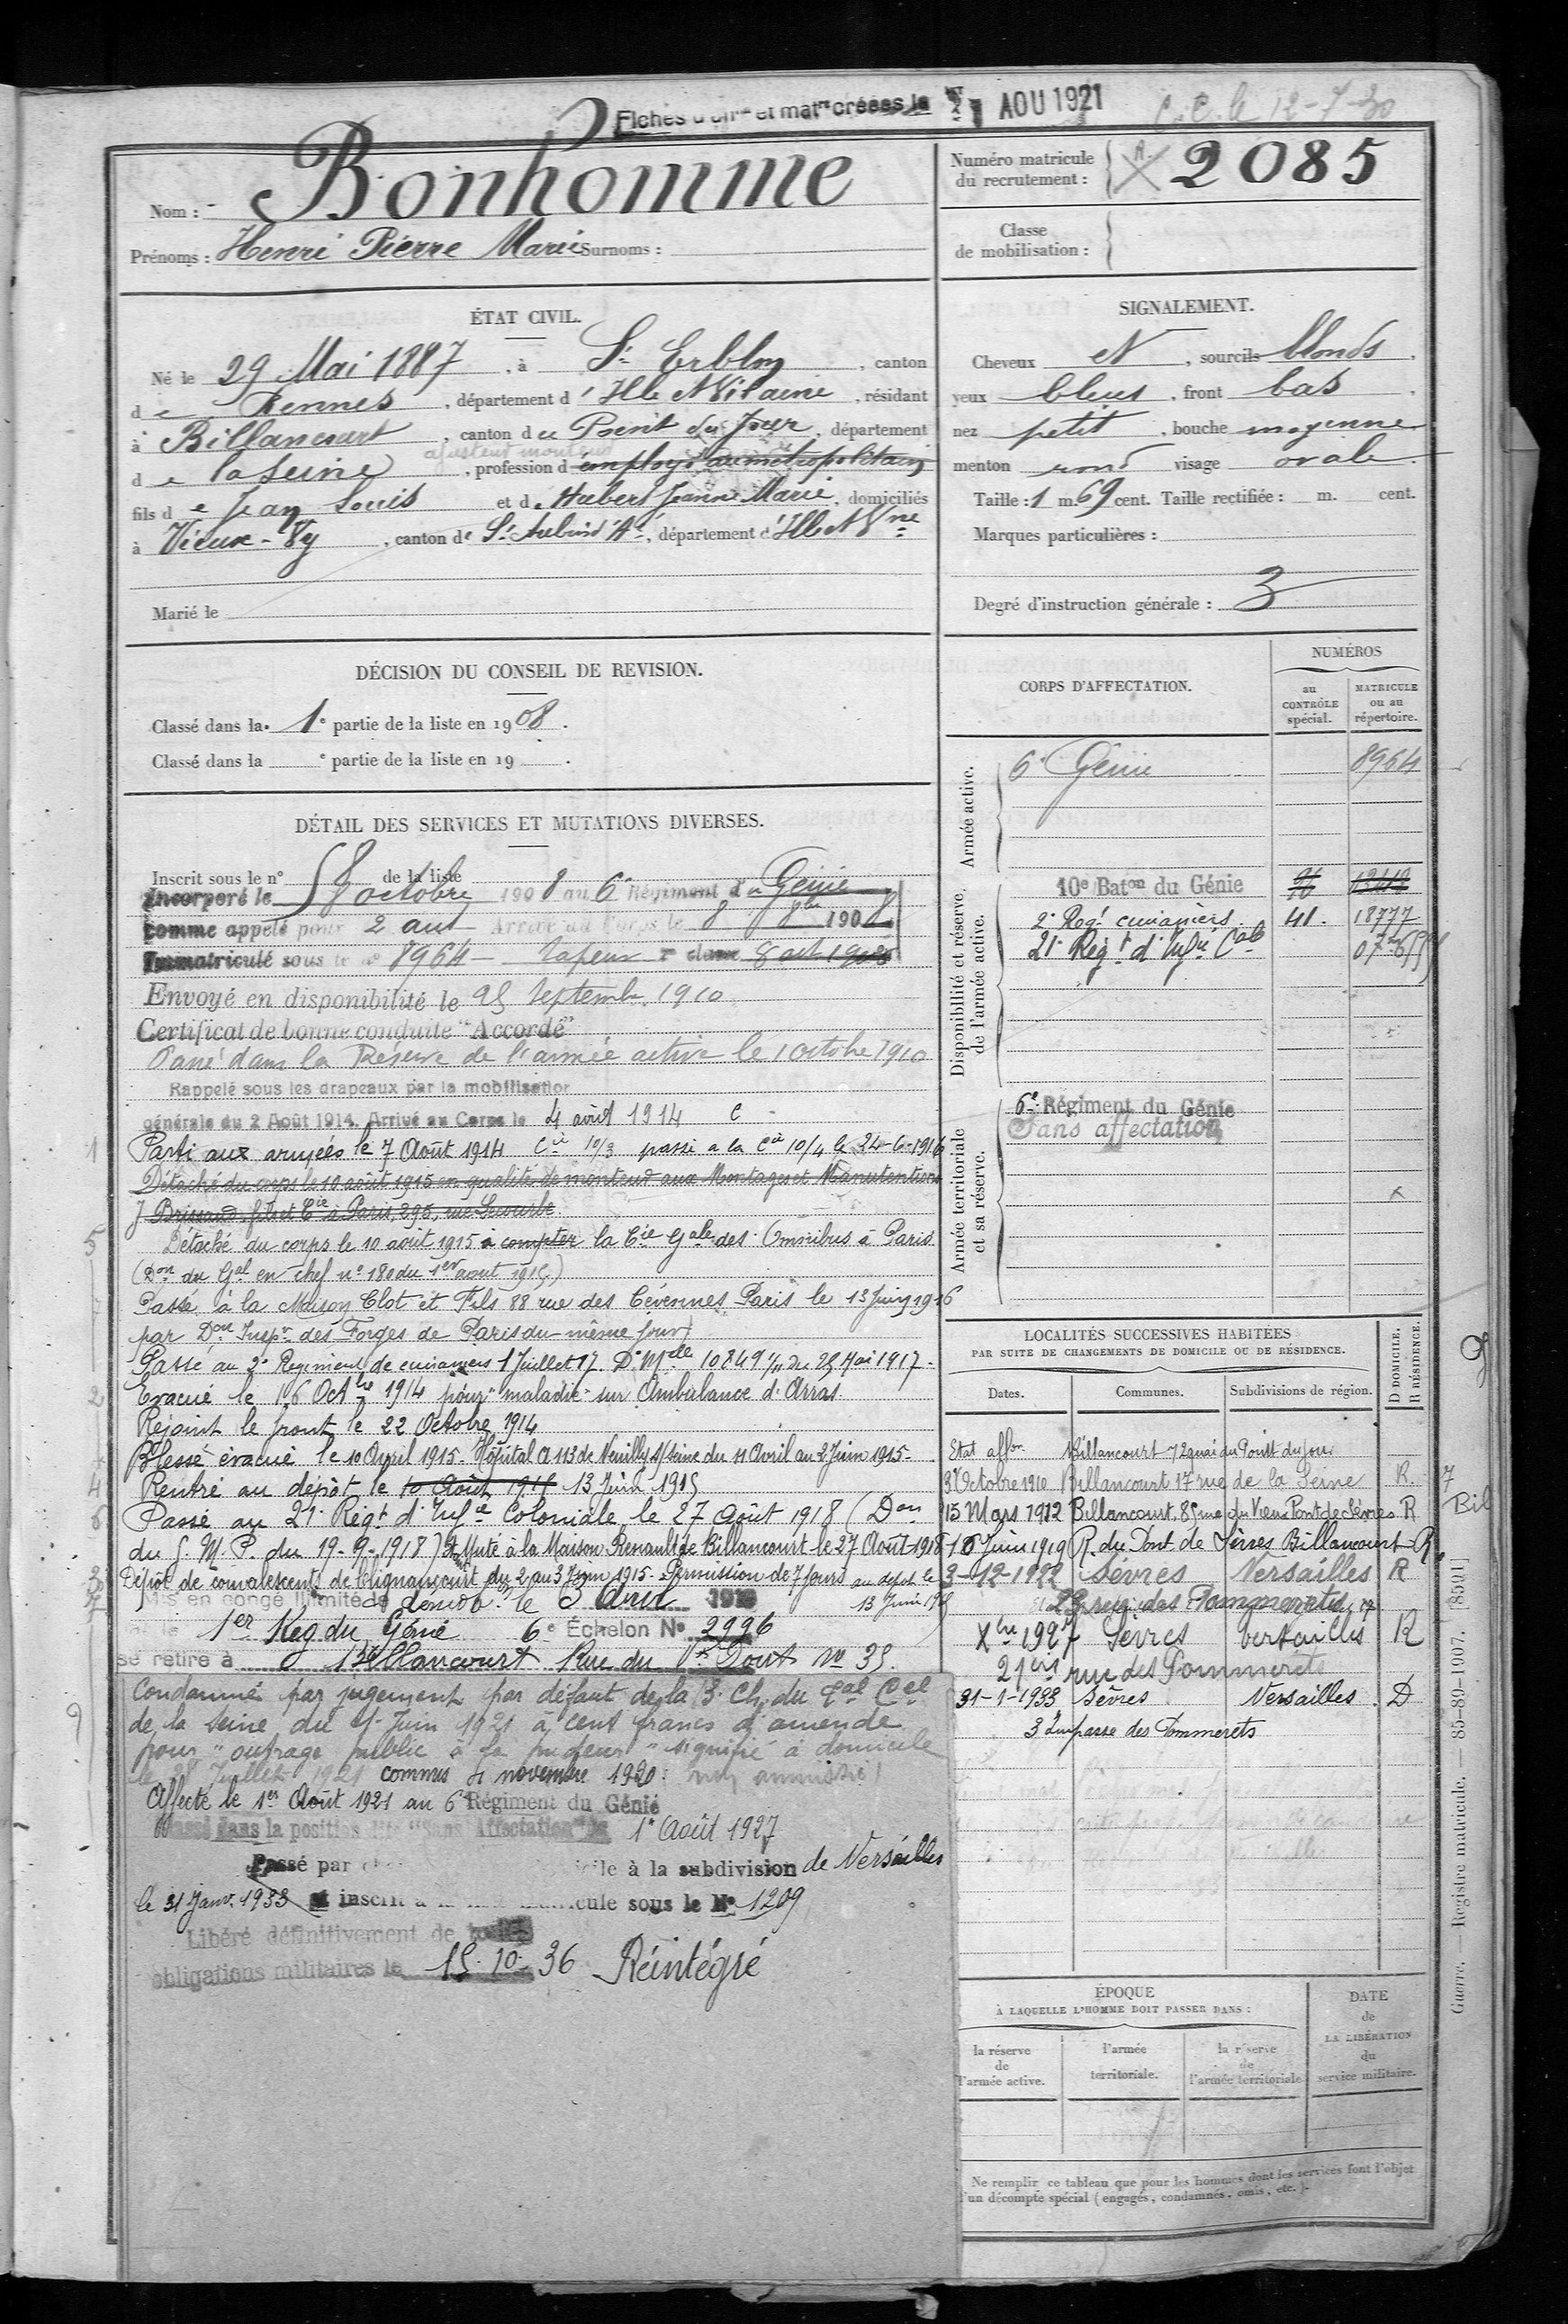 Fiches d'off et matles créées le 1 AOU 1921
C.C. le 12-7-30
Nom : Bonhomme
Prénoms : Henri Pierre Marie Surnoms :
Numéro matricule du recrutement : 2085
Classe de mobilisation :
ÉTAT CIVIL.
Né le 29 Mai 1887, à St Erblon, canton
de Rennes, département d'Ille & Vilaine, résidant
à Billancourt, canton du Point du Jour, département
ajusteur monteur
de la Seine, profession d employé au métropolitain
fils de Jean Louis et de Hubert Jeanne Marie, domiciliés
à Vieux-Vy, canton de St Aubin d'A, département d'Ille & Vne
Marié le
SIGNALEMENT.
Cheveux N, sourcils blonds,
yeux bleus, front bas,
nez petit, bouche moyenne
menton rond visage ovale
Taille : 1 m. 69 cent. Taille rectifiée : m. cent.
Marques particulières :
Degré d'instruction générale : 3
DÉCISION DU CONSEIL DE REVISION.
Classé dans la 1e partie de la liste en 1908.
Classé dans la e partie de la liste en 19 .
DÉTAIL DES SERVICES ET MUTATIONS DIVERSES.
Inscrit sous le n° 58 de la liste
Incorporé le 8 octobre 1908 au 6e Régiment du Génie
comme appelé pour 2 ans Arrivé au Corps le 8 8bre 1908
Immatriculé sous le no 8964 sapeur 2e classe 8 oct 1908
Envoyé en disponibilité le 25 Septemb. 1910
Certificat de bonne conduite "Accordé"
Passé dans la Réserve de l'armée active le 1 octobre 1910
Rappelé sous les drapeaux par la mobilisation
générale du 2 Août 1914. Arrivé au Corps le 4 août 1914 C
1 Parti aux armées le 7 Août 1914 Cie 10/3 passé à la Cie 10/4 le 24-6-1916
Détaché du corps le 10 août 1915 en qualité de monteur aux Montages et Manutentions
J Brissand, fils et Cie à Paris, 295, rue Lecourbe
5 Détaché du corps le 10 août 1915 à compter la Cie Gale des Omnibus à Paris
(Don du Gal en chef no 180 du 1er aout 1915)
Passé à la Maison Clot et Fils 88 rue des Cévennes Paris le 13 Juin 1916
par Don Inspr des Forges de Paris du même jour)
Passé au 2e Regiment de cuirassiers 1 Juillet 17 D. Mle 10849 1/11 du 25 Mai 1917.
2 Evacué le 16 Octbre 1914 pour "maladie" sur Ambulance d'Arras.
Rejoint le front le 22 Octobre 1914
Blessé évacué le 10 Avril 1915. Hôpital A 113 de Neuilly s/Seine du 11 Avril au 2 Juin 1915.
4 Rentré au dépôt le 10 Août 1915 13 Juin 1915
6 Passé au 21e Régt d'Infie Coloniale le 27 Août 1918 (Don
du G. M. P. du 19-9-1918) Muté à la Maison Renault de Billancourt le 27 Août 1918
3 Dépôt de convalescents de Clignancourt du 2 au 3 Juin 1915. Permission de 7 jours au dépôt le 13 Juin 1915
7 Mis en congé illimité de démob. le 5 Avril 1919
1er Reg du Génie 6e Échelon No 2996
se retire à Billancourt Rue du Vx Pont No 35.
9 Condamné par jugement par défaut de la 3e Ch. du Tal Cel
de la Seine du 1er Juin 1921 à cent francs d'amende
pour "outrage public à la pudeur" signifié à domicile
le 28 Juillet 1921 commis 4 novembre 1920. non amnistié
Affecté le 1er Août 1921 au 6e Régiment du Génie
Classé dans la position dite "Sans Affectation" le 1er Août 1927
Passé par domicile à la subdivision de Versailles
le 31 Janv. 1933 et inscrit à matricule sous le No 1209
Libéré définitivement de toutes
obligations militaires le 15-10-36 Réintégré
CORPS D'AFFECTATION.
NUMÉROS
au CONTRÔLE spécial.
MATRICULE ou au répertoire.
Armée active.
6e Génie 8964
Disponibilité et réserve de l'armée active.
10e Baton du Génie
2e Regt cuirassiers 41. 18777
21e Régt d'Infie Cale
Armée territoriale et sa réserve.
6e Régiment du Génie
Sans affectation
LOCALITÉS SUCCESSIVES HABITÉES
PAR SUITE DE CHANGEMENTS DE DOMICILE OU DE RÉSIDENCE.
Dates. Communes. Subdivisions de région. D DOMICILE. R RÉSIDENCE.
Etat affon Billancourt 72 quai du Point du jour
3 Octobre 1910 Billancourt 17 rue de la Seine R.
15 Mars 1912 Billancourt, 85 rue du Vieux Pont de Sèvres R
16 Juin 1919 R. du Pont de Sèvres Billancourt R
3-12-1922 Sèvres Versailles R
23 rue des Pommerets
Xbre 1927 Sèvres Versailles R
21bis rue des Pommerets
31-1-1933 Sèvres Versailles. D
3 Impasse des Pommerets
ÉPOQUE
À LAQUELLE L'HOMME DOIT PASSER DANS :
la réserve de l'armée active.
l'armée territoriale.
la réserve de l'armée territoriale
DATE de LA LIBÉRATION du service militaire.
Ne remplir ce tableau que pour les hommes dont les services font l'objet
d'un décompte spécial (engagés, condamnés, omis, etc.).
Guerre. — Registre matricule. — 85-89-1907. [8501]